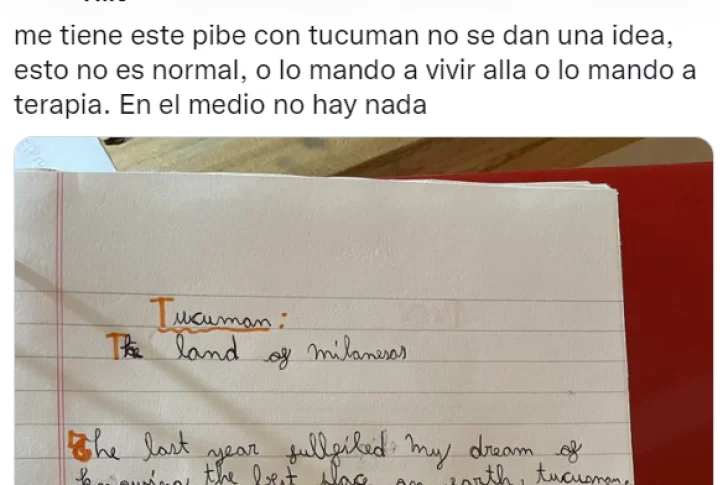 me tiene este pibe con tucuman no se dan una idea,
esto no es normal, o lo mando a vivir alla o lo mando a
terapia. En el medio no hay nada
Tucuman:
The land of milanesas
The last year fullfiled my dream of
the best plac on earth, tucuman.